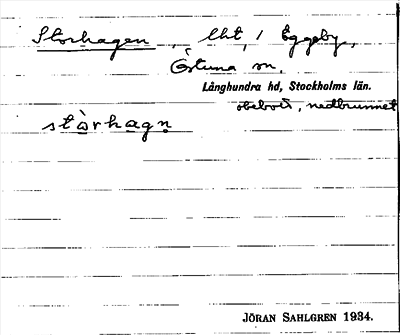 Storhagen, lht, i Eggeby,
Östuna sn,
Långhundra hd, Stockholms län.
obebott, nedbrunnet
stòrhagn̥
JÖRAN SAHLGREN 1934.